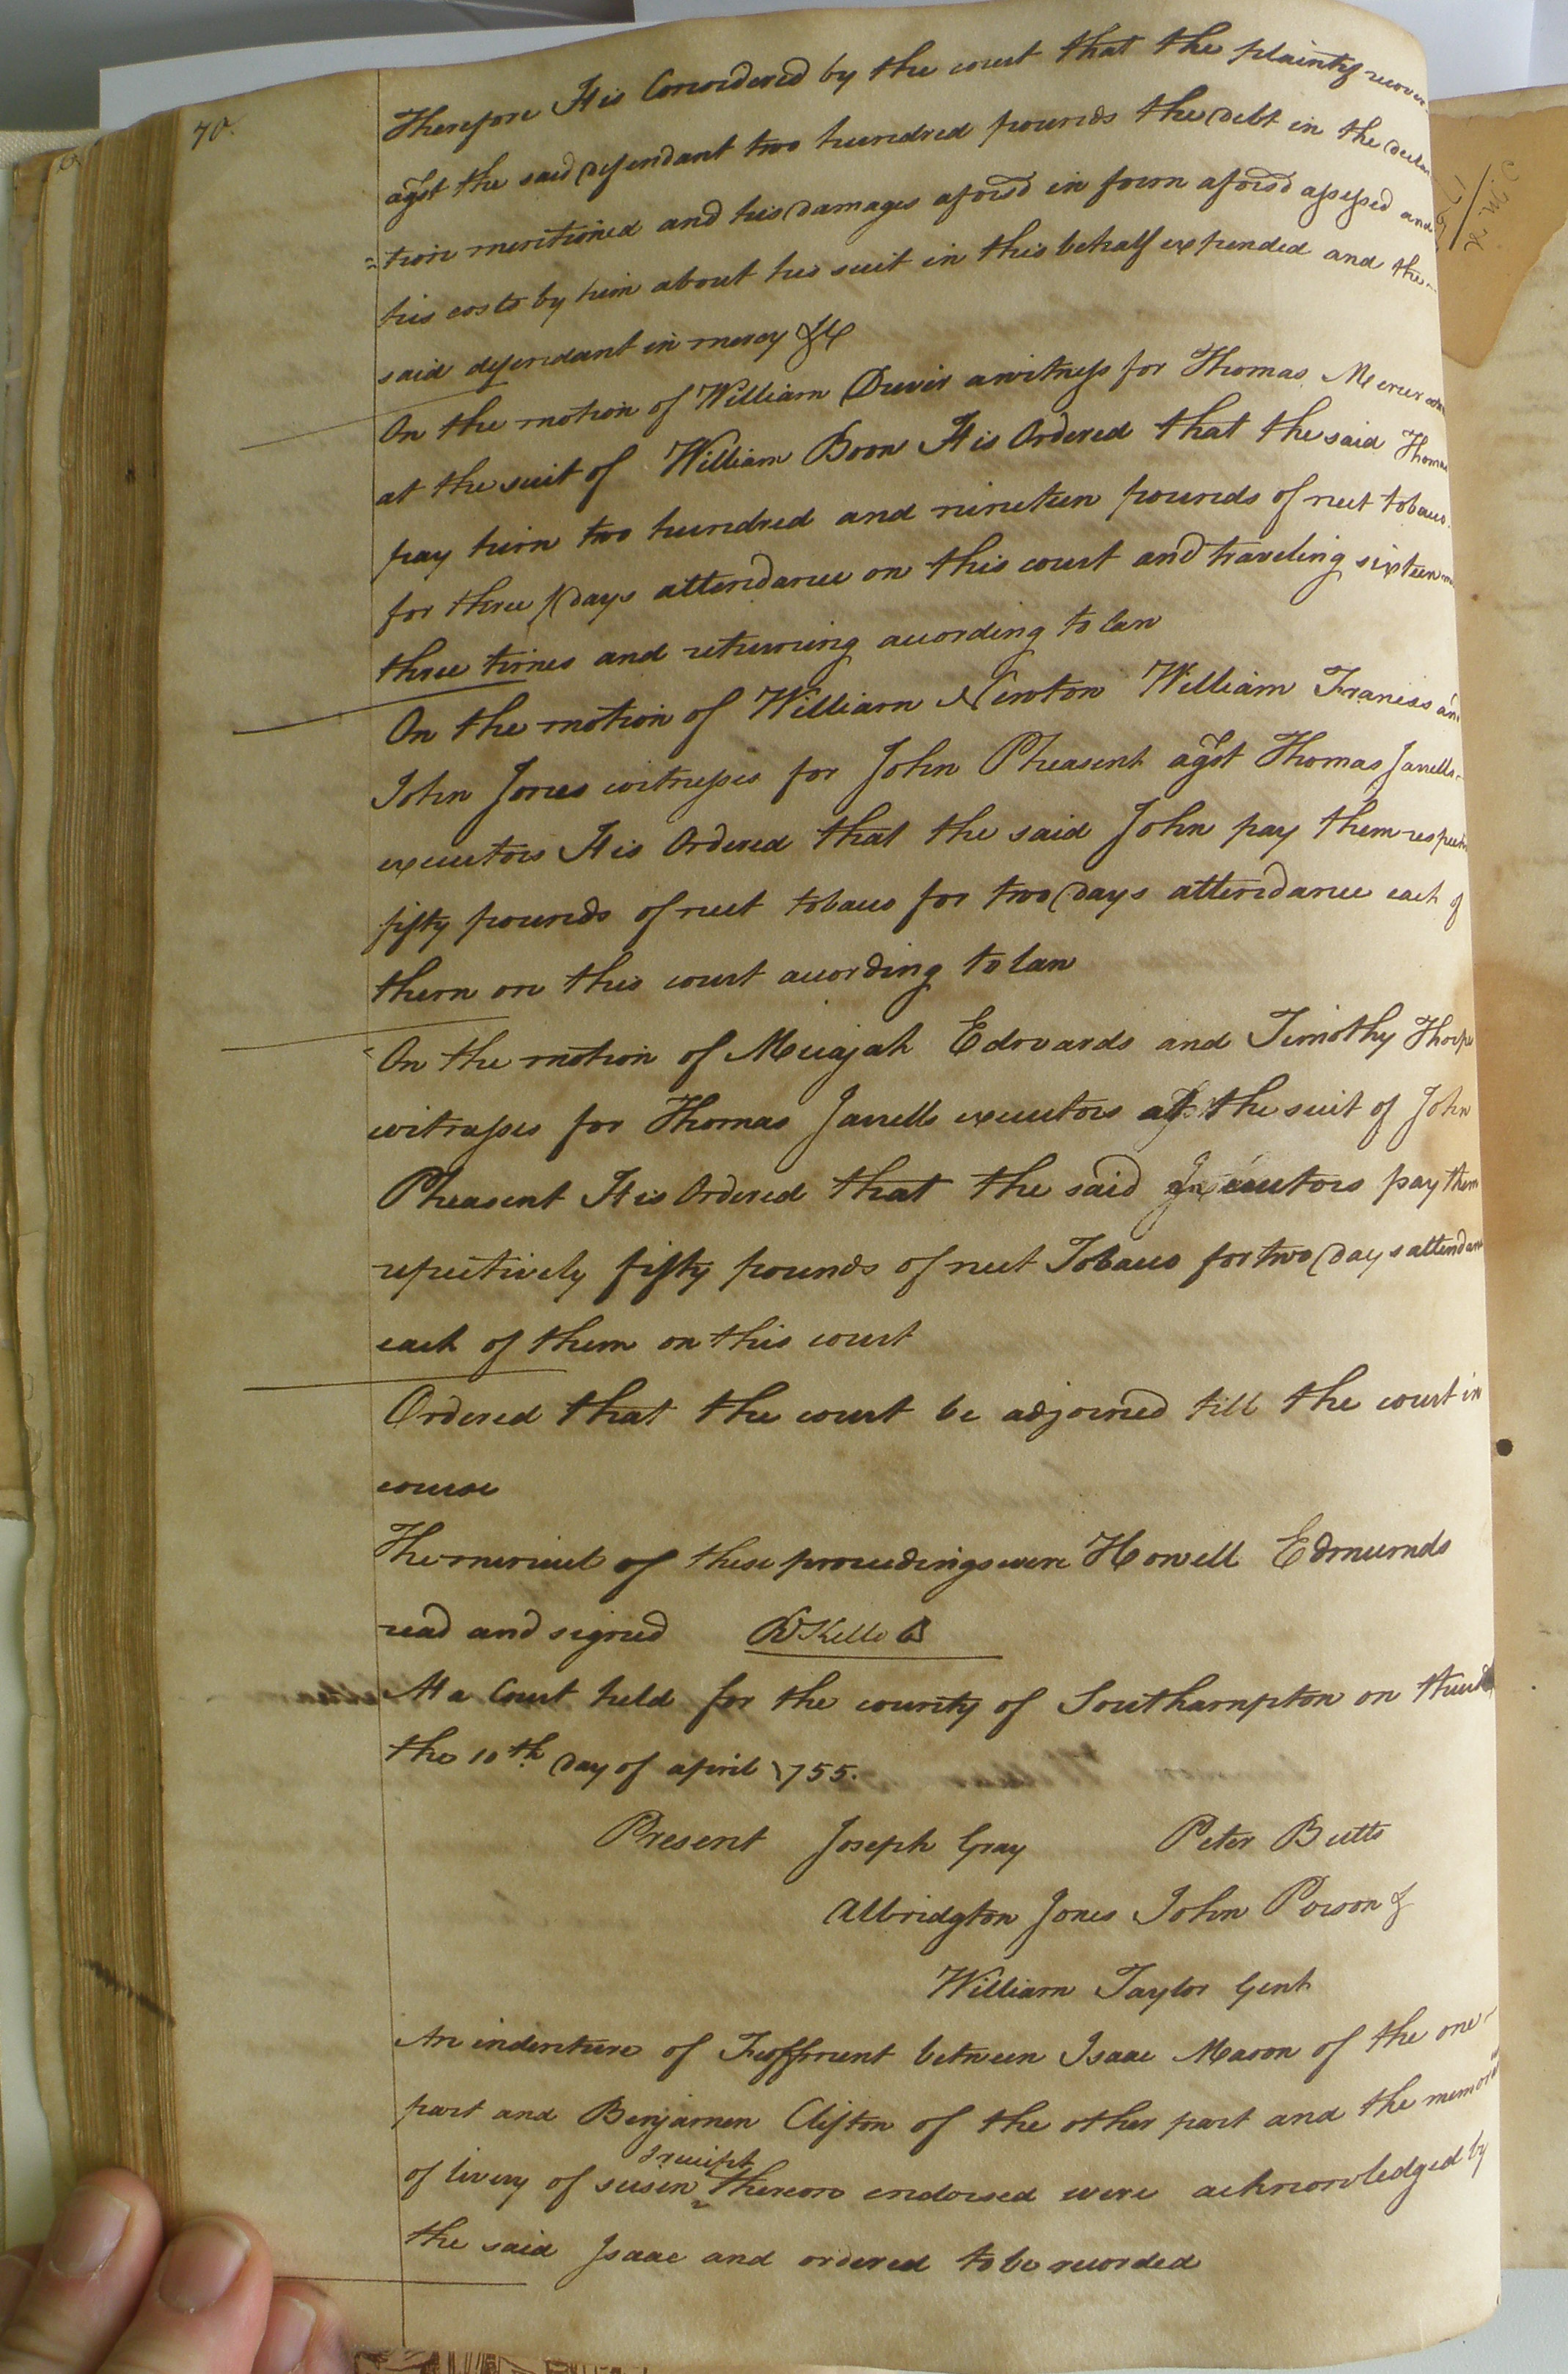 70.
Therefore It is Considered by the court that the plaintif recover
agst the said defendant two hundred pounds the debt in the declara
=tion mentioned and his damages aforsd in form aforsd assessed and
his costs by him about his suit in this behalf expended and the
said defendant in mercy &c
On the motion of William a witness for Thomas
at the suit of William Boon It is Ordered that the said Thomas
pay him two hundred and nineteen pounds of neet tobacco
for three days attendance on this court and traveling sixteen
three times and returning according to law
On the motion of William Newton William Francis and
John Jones witnesses for John Pheasent agst Thomas Jarrells
executors It is Ordered that the said John pay them
fifty pounds of neet tobacco for two days attendance each of
them on this court according to law
On the motion of Micajah Edwards and Timothy Thorp
witnesses for Thomas Jarrells executors at the suit of John
Pheasent It is Ordered that the said Executors pay them
respectively fifty pounds of neet Tobacco for two days attendance
each of them on this court
Ordered that the court be adjorned till the court in
course
The of these proceedings were Howell Edmunds
read and signed RKello
At a Court held for the county of Southampton on
the 10th day of april 1755.
Present Joseph Gray Peter Butts
Albridgton Jones John Person &
William Taylor Gent
An indenture of Feoffment between Isaac Mason of the one
part and Benjamen Clifton of the other part and the
receipt
of livery of seisen thereon endorsed were acknowledged by
the said Isaac and ordered to be recorded